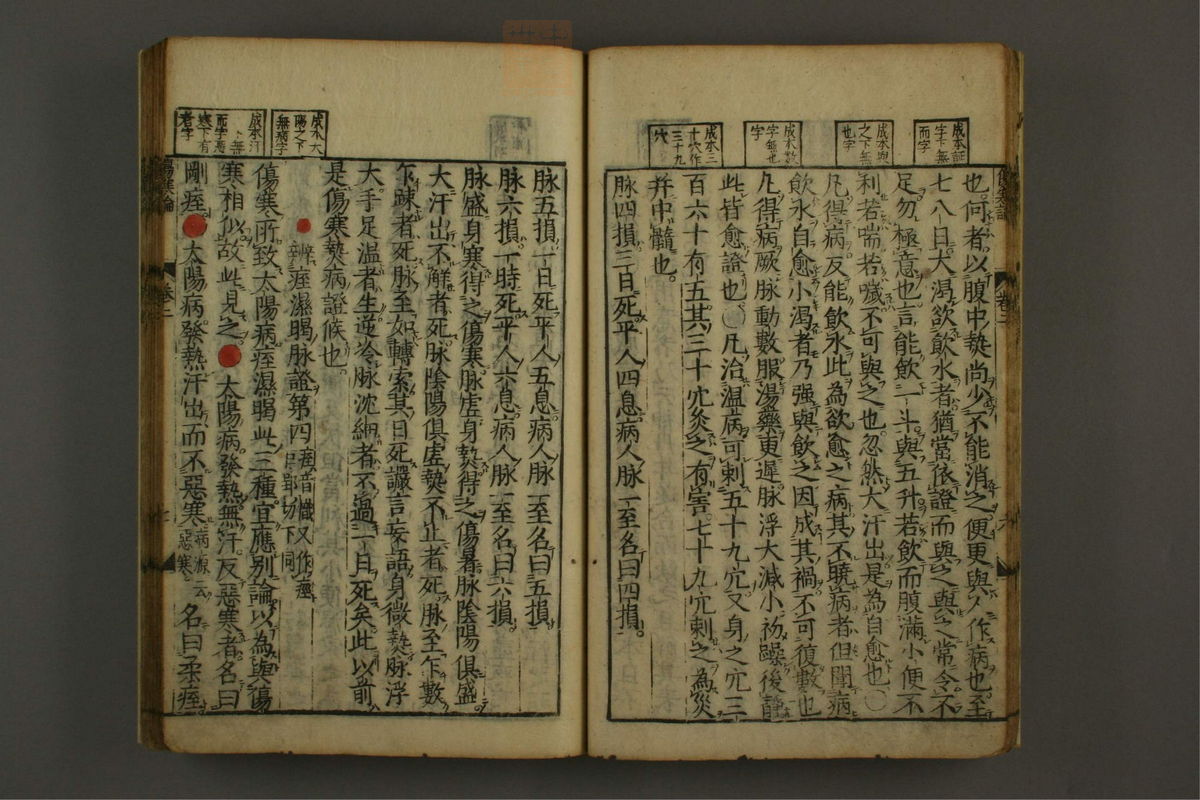 成本証
字下無
而字
成本與
之下無
也字
成本數
字無也
字
成本三
十穴作
三十九
穴
也何者以腹中熱尚少不能消之便更與人作病也至
七八日大渇欲飲水者猶當依證而與之與之常令不
足勿極意也言能飲一斗與五升若飲而腹滿小便不
利若喘若噦不可與之也忽然大汗出是為自愈也〇
凡得病反能飲水此為欲愈之病其不曉病者但聞病
飲水自愈小渇者乃强與飲之因成其禍不可復數也
凡得病厥脉動數服湯藥更遲脉浮大減小初躁後靜
此皆愈證也〇凡治温病可刺五十九穴又身之穴三
百六十有五其三十穴灸之有害七十九穴刺之為災
并中髓也
脉四損三日死平人四息病人脉一至名曰四損
傷寒論
卷二
成本大
陽之下
無病字
成本汗
出無
而字惡
寒下有
者字
脉五損一日死平人五息病人脉一至名曰五損
脉六損一時死平人六息病人脉一至名曰六損
脉盛身寒得之傷寒脉虛身熱得之傷暑脉陰陽俱盛
大汗出不解者死脉陰陽俱虛熱不止者死脉至乍數
乍踈者死脉至如轉索其日死讝言妄語身微熱脉浮
大手足温者生逆冷脉沈細者不過一日死矣此以前
是傷寒熱病證候也
辨痓濕暍脉證第四痓音懺又作痙
巨郢切下同
傷寒所致太陽病痓濕暍此三種宜應別論以為與傷
寒相似故此見之 太陽病發熱無汗反惡寒者名曰
剛痓 太陽病發熱汗出而不惡寒病源云
惡寒名曰柔痓
傷寒論
卷二
七